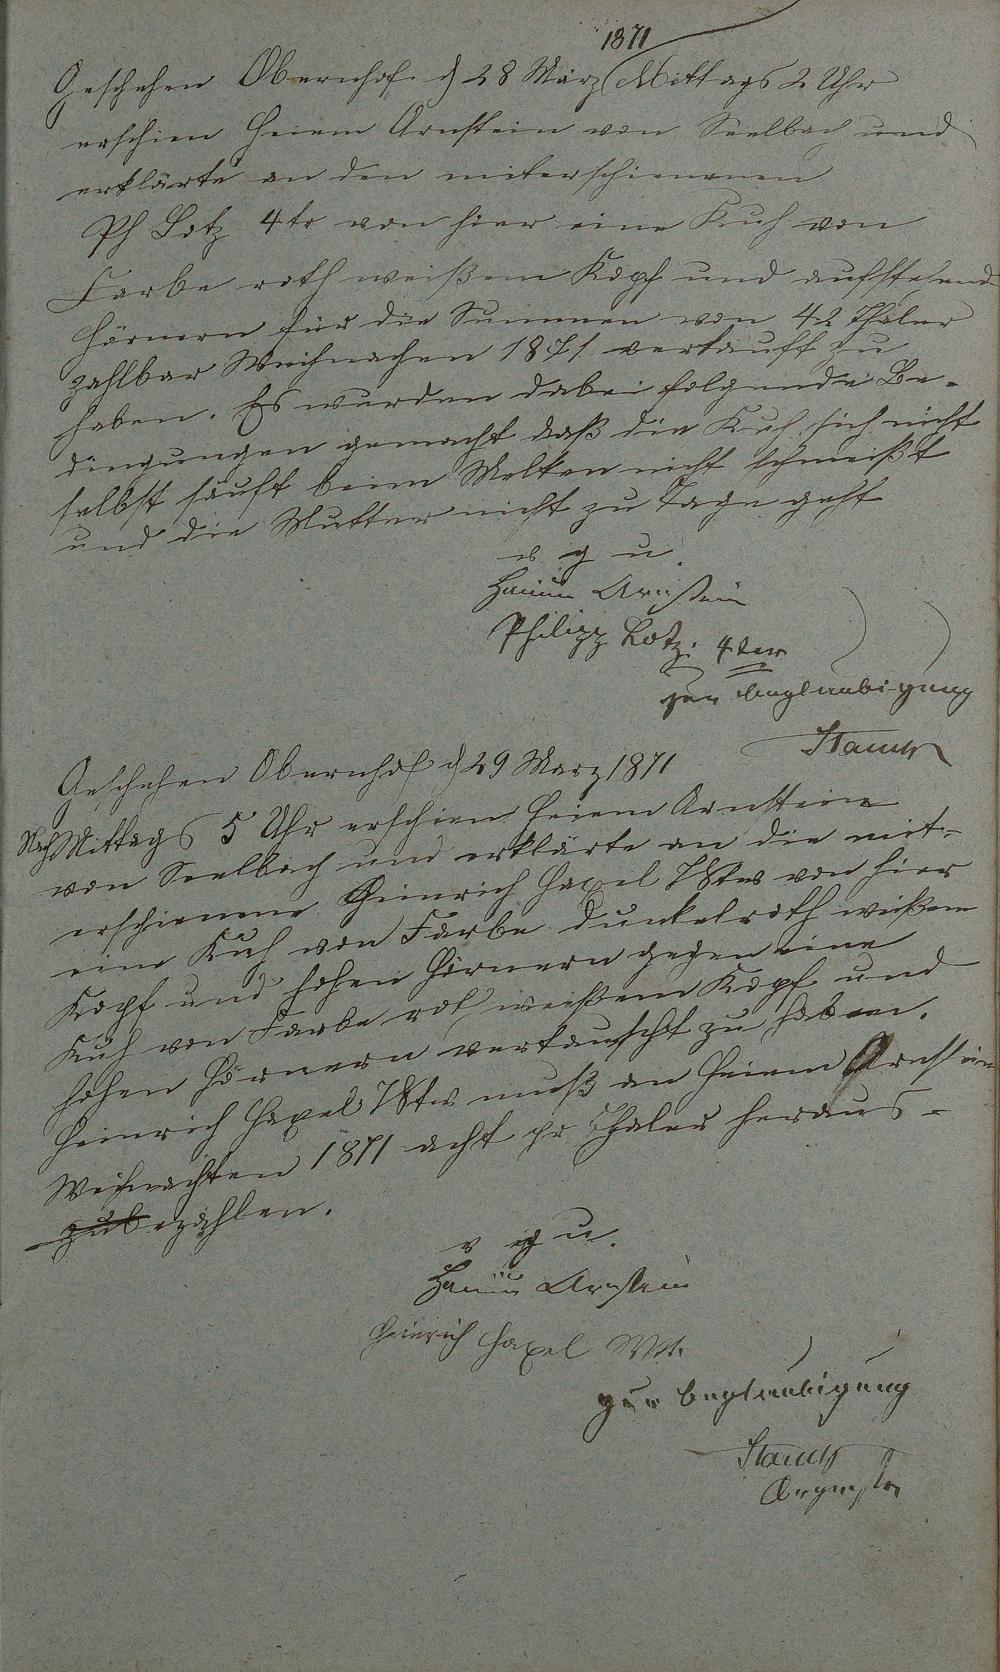 1871
Geschehen Obernhof d 28 März Mittags 2 Uhr
erschien Heium Arnstein von Seelbach und
erklärte an den miterschienenen
Ph Lotz 4tr von hier eine Kuh von
Farbe roth weißem Kopf und aufstehend
Hörnern für die Summen von 42 Thaler
zahlbar Weihnachen 1871 verkauft zu
haben. Es wurden dabei folgende Be-
dingungen gemacht daß die Kuh sich nicht
selbst säuft beim Melken nicht schmeißt
und die Mutter nicht zu Tage geht
v g u.
Arnstein
Philipp Lotz: 4ter
zur Beglaubigung
Geschehen Obernhof d 29 März 1871
NachMittags 5 Uhr erschien Heium Arnstein
von Seelbach und erklärte an die mit-
erschienene Heinrich Haxel Wtw von hier
eine Kuh von Farbe dunkelroth weißem
Kopf und hohen Hörnern gegen eine
Kuh von Farbe rot weißem Kopf und
hohen Hörnern vertauscht zu haben.
Heinrich Haxel Wtw muß an Heium Arnstein
Weihnachten 1871 acht pr Thaler heraus-
zubezahlen.
v g u.
Arnstein
Heinrich Haxel Wtt.
zur Beglaubigung